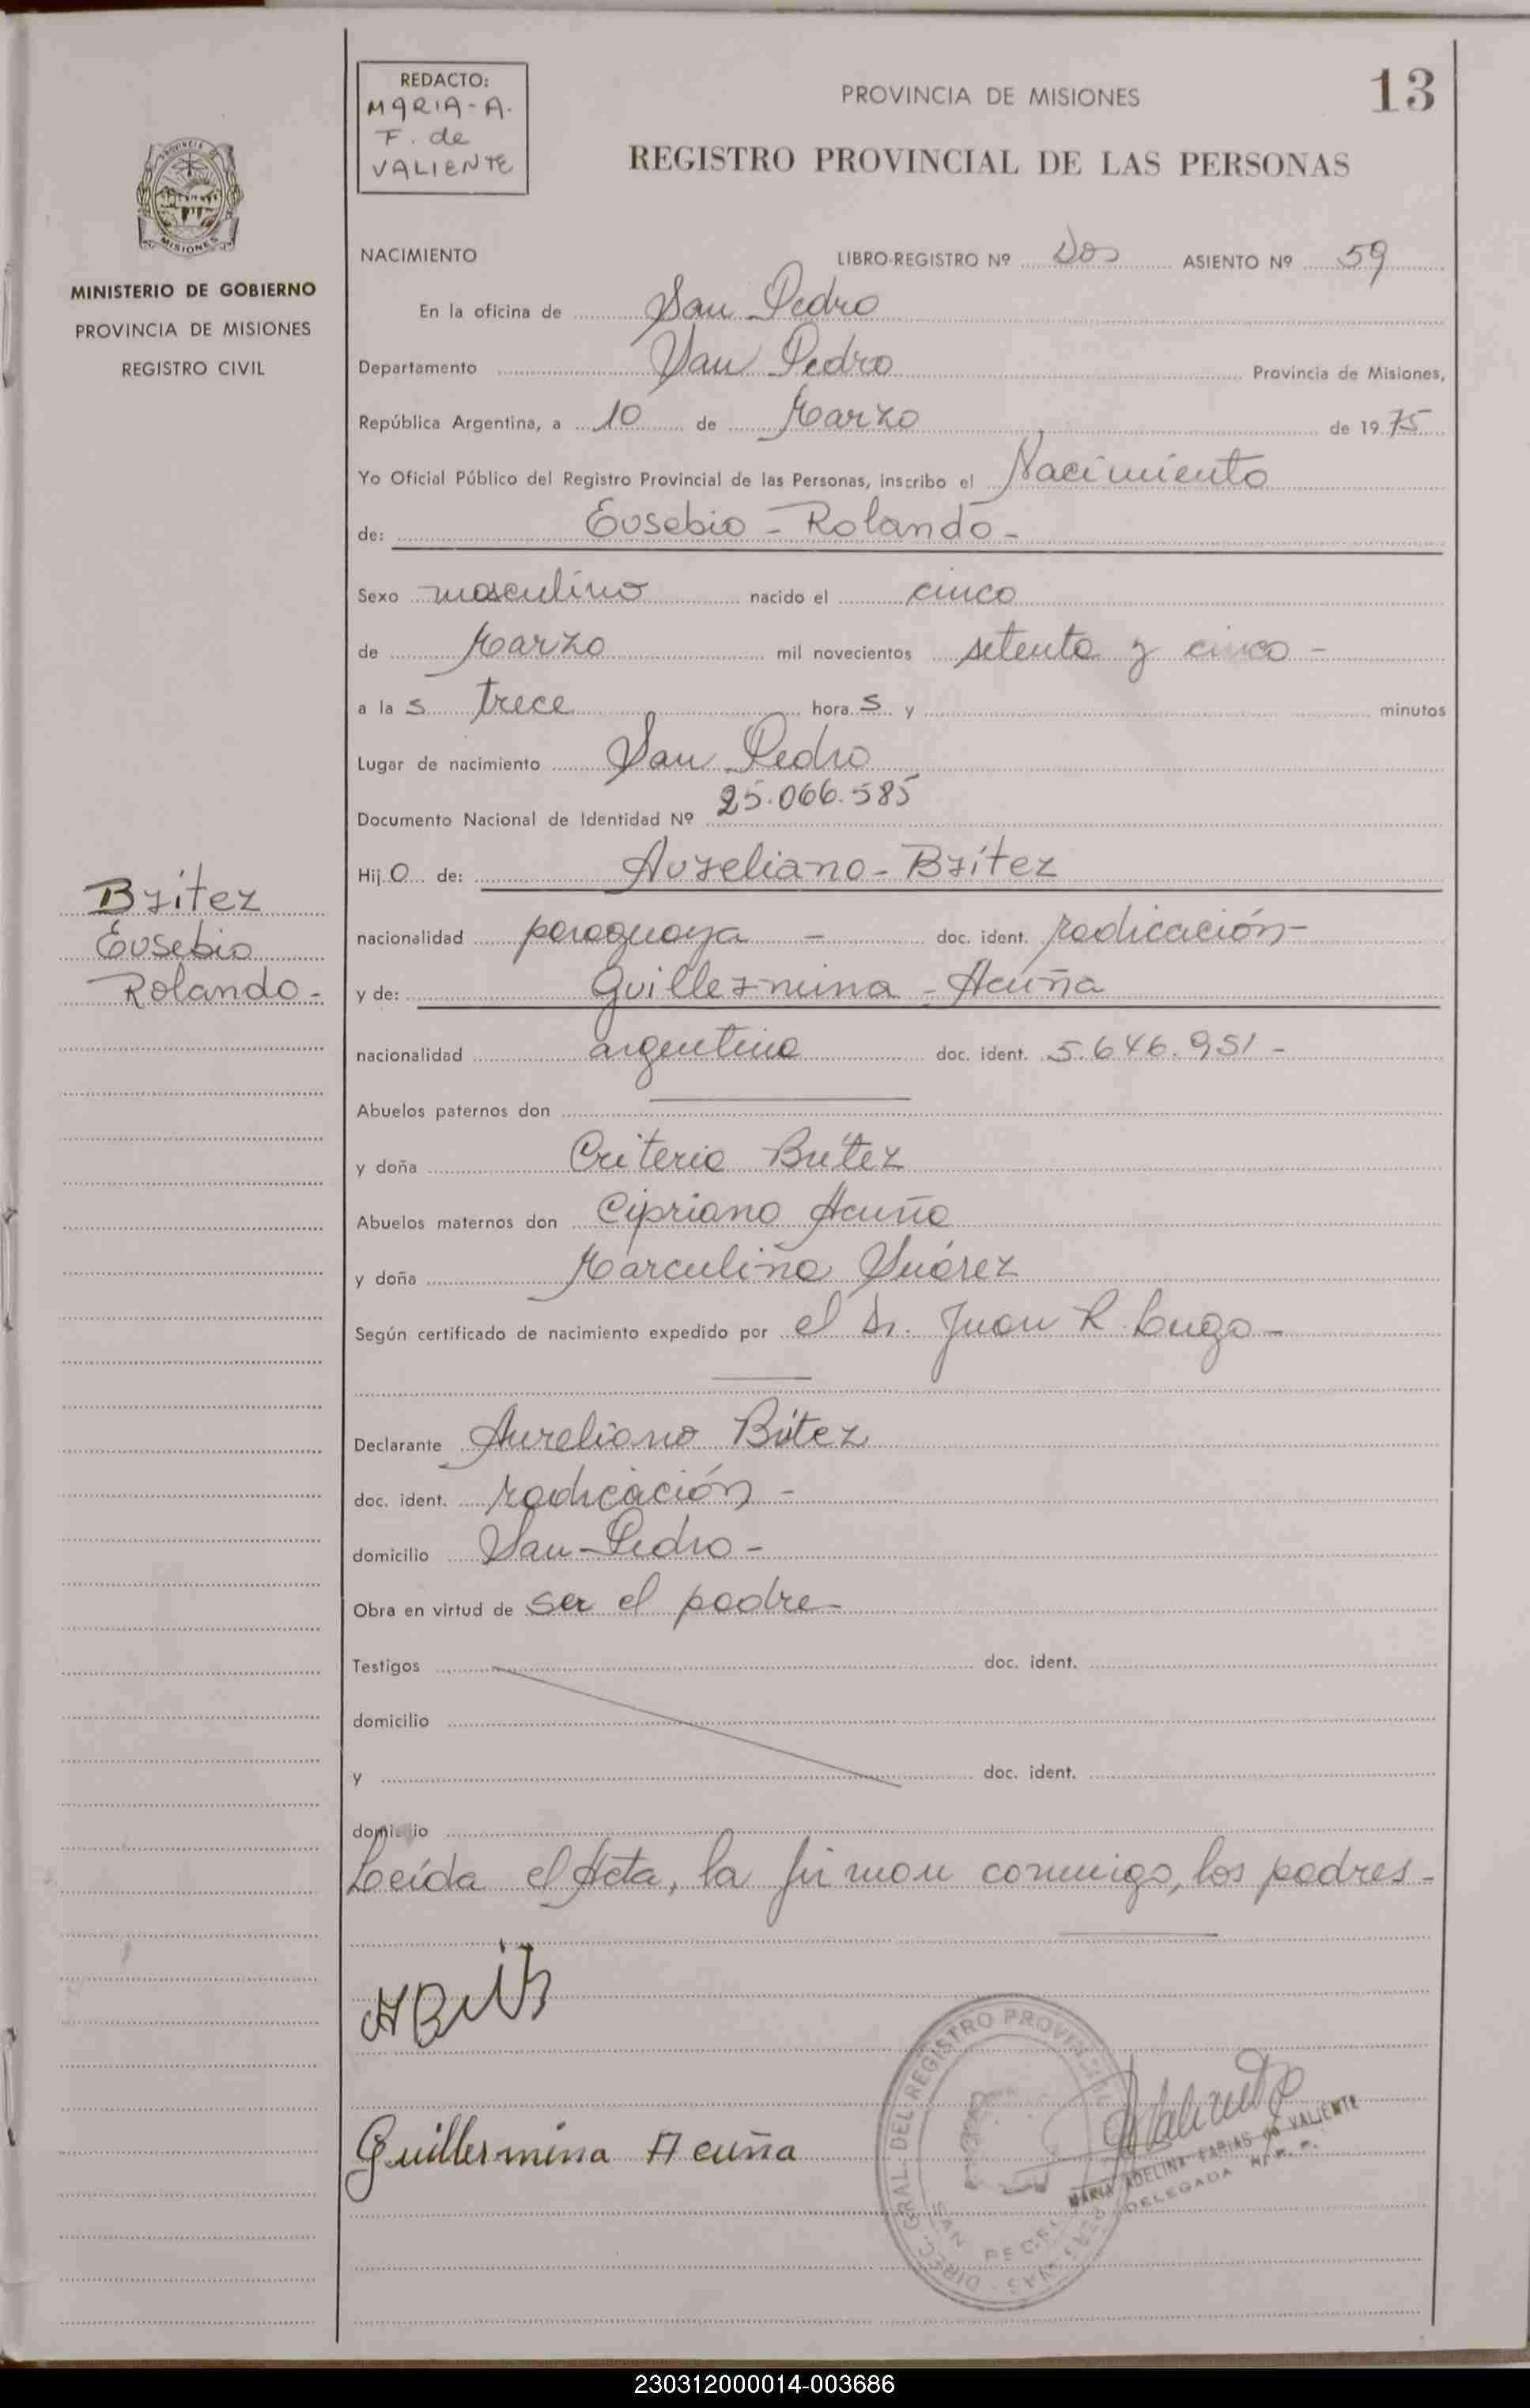 REDACTO:
MARIA-A.
F. de
VALIENTE
PROVINCIA DE MISIONES
13
REGISTRO PROVINCIAL DE LAS PERSONAS
PROVINCIA DE
MISIONES
MINISTERIO DE GOBIERNO
PROVINCIA DE MISIONES
REGISTRO CIVIL
NACIMIENTO LIBRO-REGISTRO Nº Dos ASIENTO Nº 59
En la oficina de San Pedro
Departamento San Pedro Provincia de Misiones,
República Argentina, a 10 de Marzo de 1975
Yo Oficial Público del Registro Provincial de las Personas, inscribo el Nacimiento
de: Eusebio - Rolando -
Sexo masculino nacido el cinco
de Marzo mil novecientos setenta y cinco -
a las trece horas y minutos
Lugar de nacimiento San Pedro
Documento Nacional de Identidad Nº 25.066.585
Hijo de: Aureliano - Britez
nacionalidad paraguaya - doc. ident. radicación -
y de: Guillermina - Acuña
nacionalidad argentina doc. ident. 5.646.951 -
Abuelos paternos don
y doña Criteria Britez
Abuelos maternos don Cipriano Acuña
y doña Marculina Suárez
Según certificado de nacimiento expedido por el Dr. Juan R. Lugo -
Declarante Aureliano Britez
doc. ident. radicación -
domicilio San Pedro -
Obra en virtud de ser el padre -
Testigos doc. ident.
domicilio
y doc. ident.
domicilio
Leída el Acta, la firman conmigo, los padres -
Britez
Eusebio
Rolando -
Guillermina Acuña
DIREC. GRAL. DEL REGISTRO PROVINCIAL
SAN PEDRO
MARIA ADELINA FARIAS de VALIENTE
DELEGADA
230312000014-003686